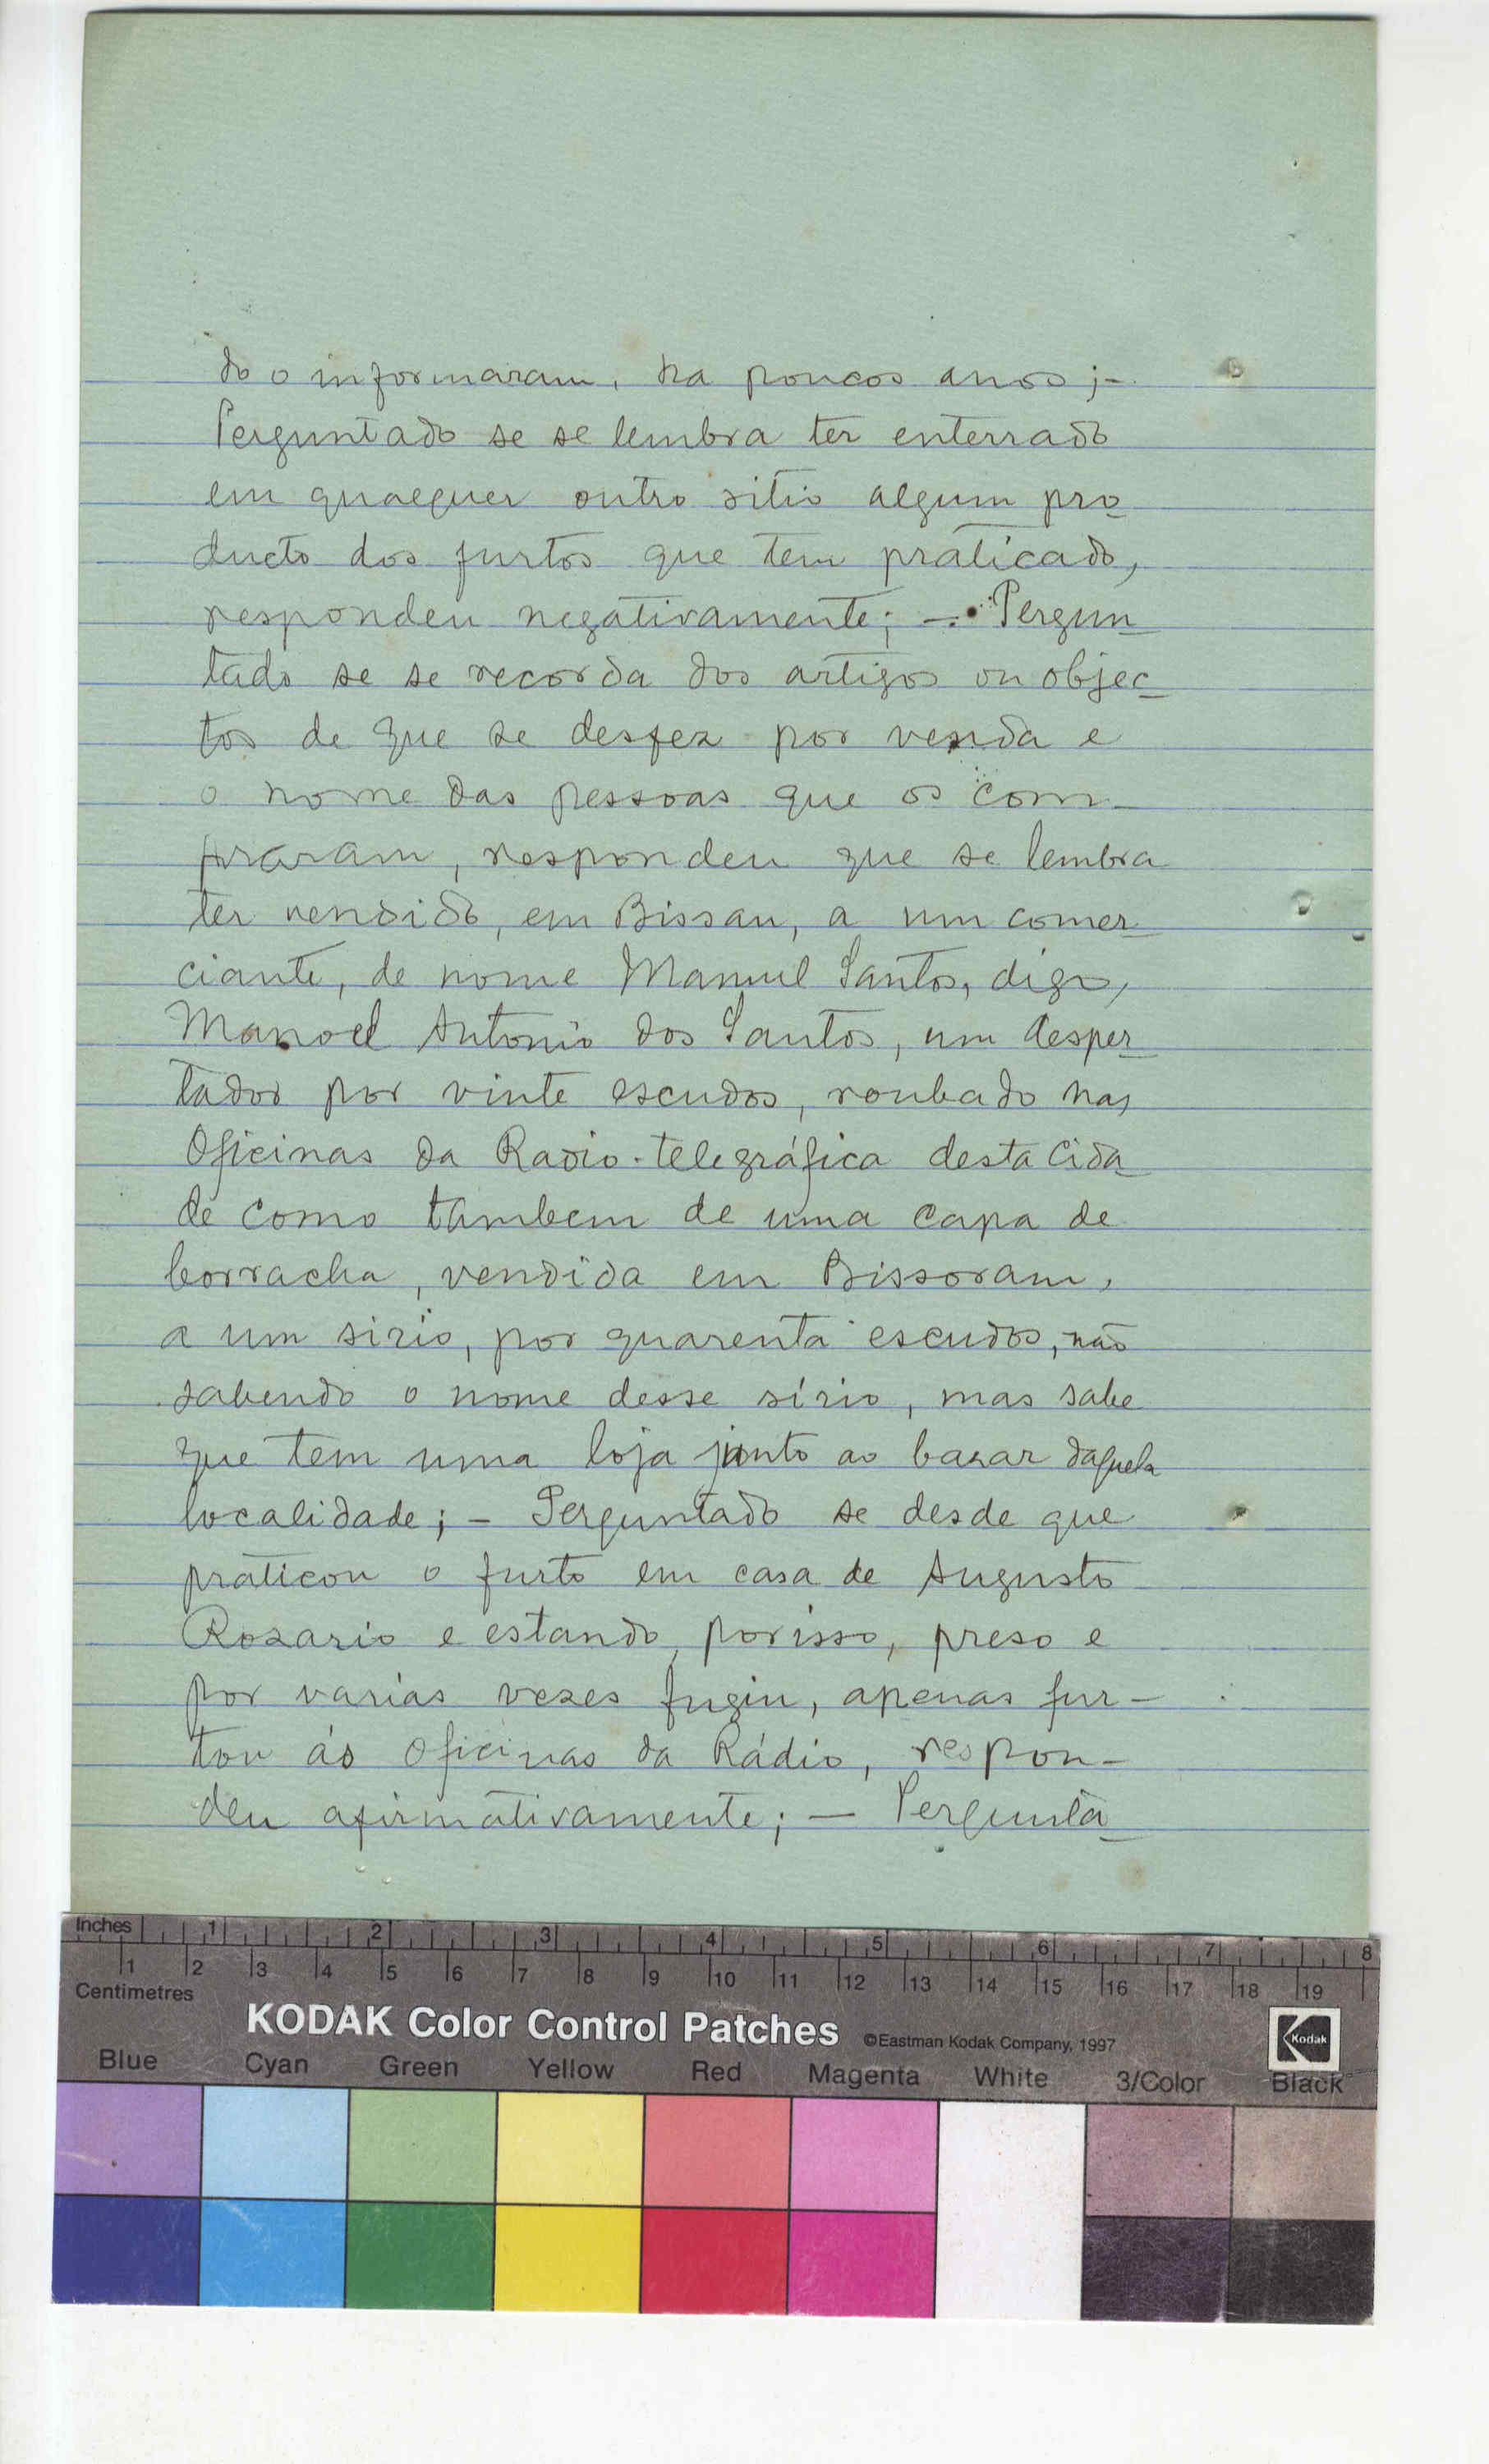 do o informaram, ha poucos anos;-
Perguntado se se lembra ter enterrado
em qualquer outro sitio algum pro
ducto dos furtos que tem praticado,
respondeu negativamente; -. Pergun
tado se se recorda dos artigos ou objec
tos de que se desfez por venda e
o nome das pessoas que os com-
praram, respondeu que se lembra
ter vendido, em Bissau, a um comer
ciante, de nome Manuel Santos, digo,
Manoel Antonio dos Santos, um desper
tador por vinte escudos, roubado nas
Oficinas da Radio-telegráfica desta cida
de como tambem de uma capa de
borracha, vendida em Bissoram,
a um sirio, por quarenta escudos, não
sabendo o nome desse sírio, mas sabe
que tem uma loja junto ao bazar daquela
localidade; - Perguntado se desde que
praticou o furto em casa de Augusto
Rozario e estando, porisso, preso e
por varias vezes fugiu, apenas fur-
tou ás Oficinas da Rádio, respon-
deu afirmativamente; - Pergunta
Inches 1 2 3 4 5 6 7 8
1 2 3 4 5 6 7 8 9 10 11 12 13 14 15 16 17 18 19
Centimetres
KODAK Color Control Patches ©Eastman Kodak Company, 1997 Kodak
Blue Cyan Green Yellow Red Magenta White 3/Color Black